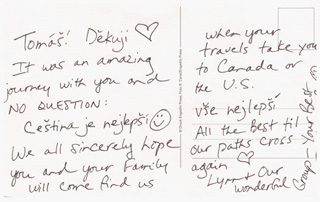 Tomáš! Děkuji ♡
It was an amazing
journey with you and
NO QUESTION:
Čeština je nejlepší ☺
We all sincerely hope
you and your family
will come find us
when your
travels take you
to Canada or
the U.S.
vše nejlepší
All the Best til
our paths cross
again ♡
Lynn & Our
wonderful Group - Your Best